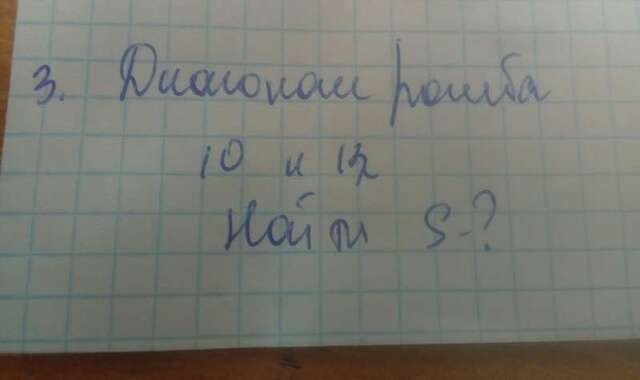 3. Диагонали ромба
10 и 12
Найти S-?